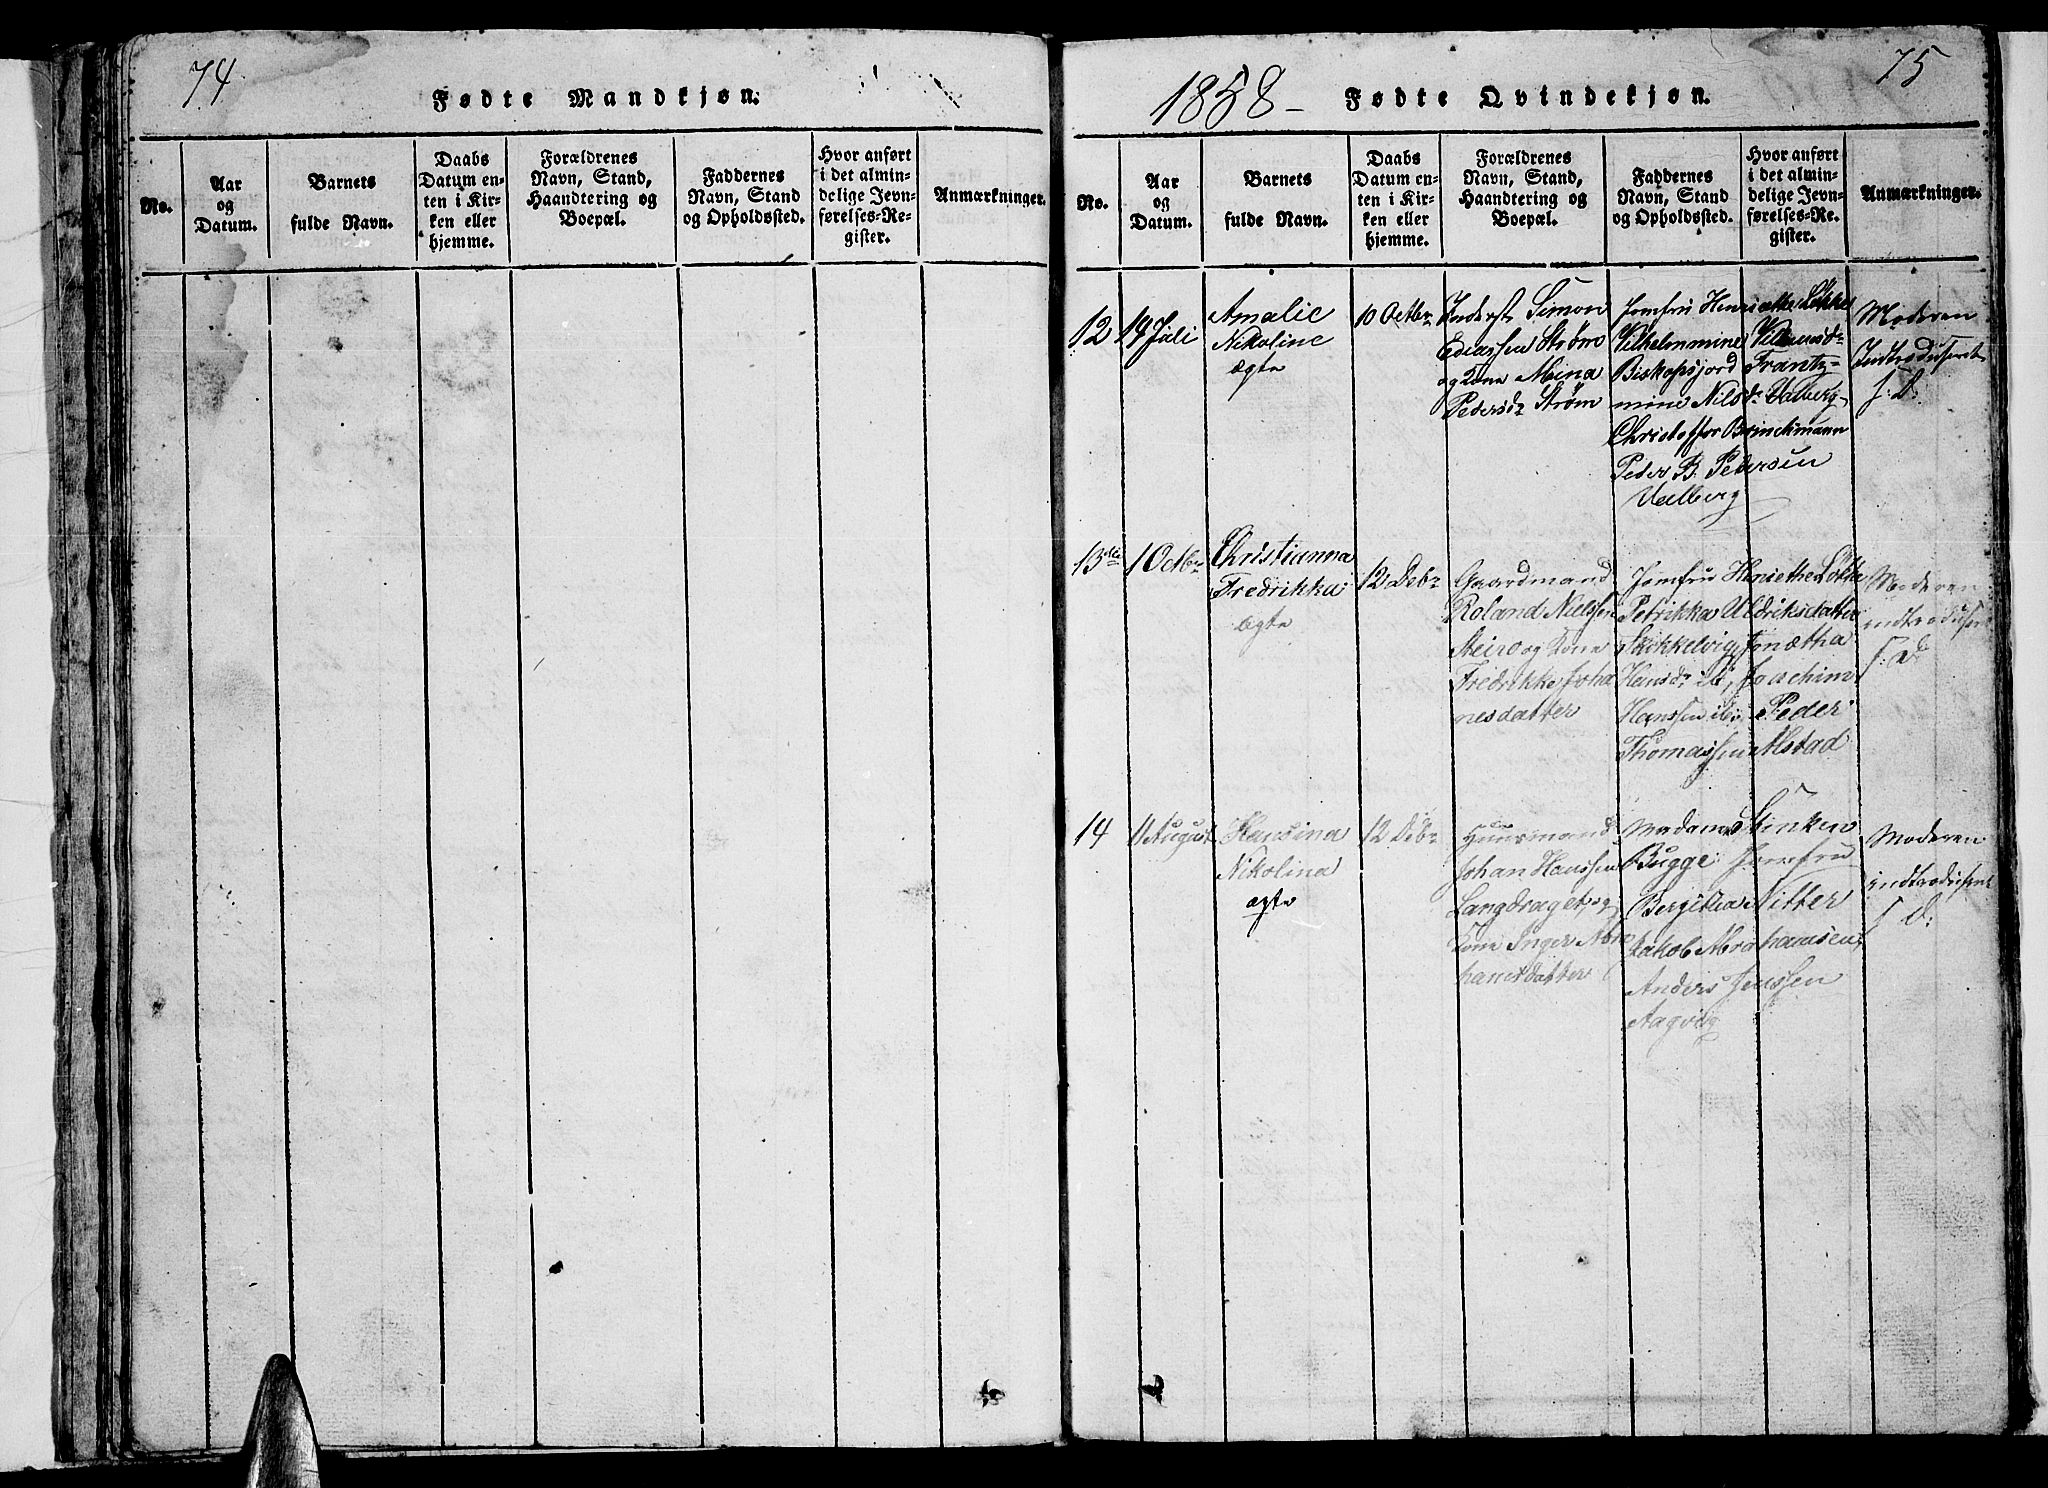 74
Fødte Mandkjøn.
No.
Aar
og
Datum.
Barnets
fulde Navn.
Daabs
Datum en-
ten i Kir-
ken eller
hjemme.
Forældrenes
Navn, Stand,
Haandtering og
Boepæl.
Faddernes
Navn, Stand
og Opholdssted.
Hvor anført
i det almin-
delige Jevn-
førelses-Re-
gister.
Anmærkninger.
1858-
Fødte Qvindekjøn.
75
No.
Aar
og
Datum.
Barnets
fulde Navn.
Daabs
Datum en-
ten i Kir-
ken eller
hjemme.
Forældrenes
Navn, Stand,
Haandtering og
Boepæl.
Faddernes
Navn, Stand
og Opholdssted.
Hvor anført
i det almin-
delige Jevn-
førelses-Re-
gister.
Anmærkninger.
12
14 Juli
Amalie
Nikoline
ægte
10 Octbr
Inderst Simon
Ediassen Strøm
og Kone
Pedersdr Strøm
Jomfru Henriethe
Vilhelmmine
Biskopsjord Frantz-
mine Nilsdr Valberg
Christoffer Brinckmann
Peder B. Petersen
Valberg
Moderen
Introduseret
s: D:
13de
1 Octbr
Christianna
Fredrikka
ægte
12 Debr
Gaardmand
Roland Nielssen
Steiro og Kone
Fredrikke Joha
nesdatter
Jomfru Henriethe
Petrikka Uldriksdatter
Skikkelvig
Hansdr ib, Joachim
Hanssen ib: Peder
Thomassen Alstad
Moderen
indtroduseret
s: d:
14
11 August
Hansina
Nikolina
ægte
12 Debr
Huusmand
Johan Hanssen
Langdraget og
Kone Inger Abra
hamsdatter
Madame Stinken
Bugge Jomfru
Bergitha Nitter
Jakob Abrahamsen
Anders Jenssen
Aagvig
Moderen
indtroduseret
s d: